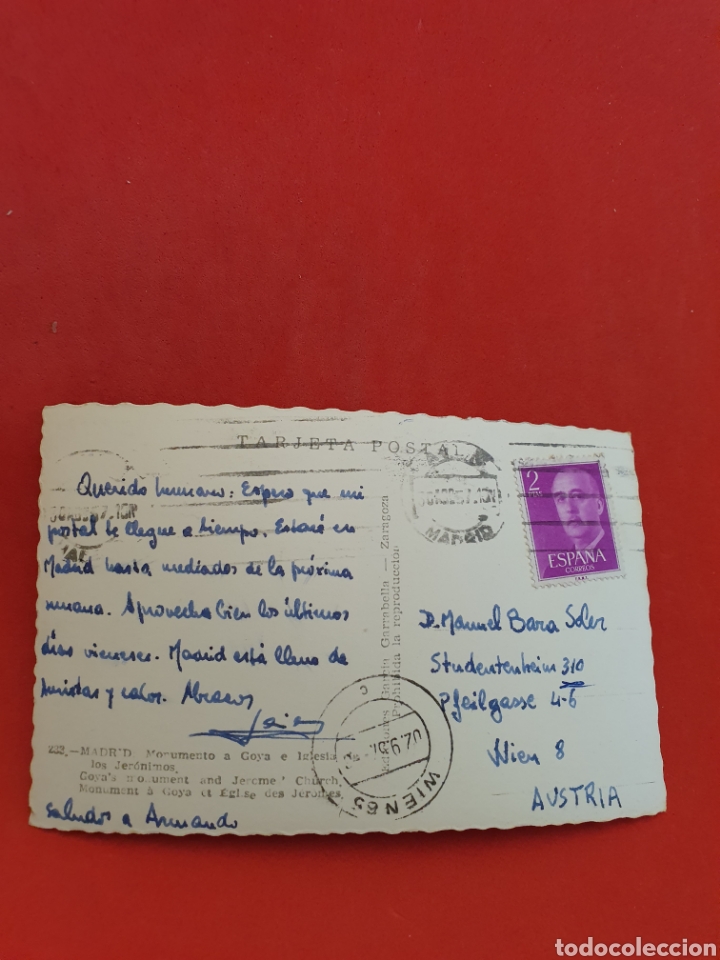 TARJETA POSTAL
Querido hermano: Espero que mi
postal te llegue a tiempo. Estaré en
Madrid hasta mediados de la próxima
semana. Aprovecha bien los últimos
días vieneses. Madrid está lleno de
turistas y calor. Abrazos
232.—MADRID. Monumento a Goya e Iglesia de
los Jerónimos.
Goya's monument and Jerome' Church.
Monument à Goya et Église des Jeromes.
saludos a Armando
Ediciones García Garrabella — Zaragoza
Prohibida la reproducción
MADRID
2
PTAS
ESPAÑA
CORREOS
D. Manuel Bara Soler
Studentenheim 310
Pfeilgasse 4-6
Wien 8
AUSTRIA
WIEN 65
todocoleccion